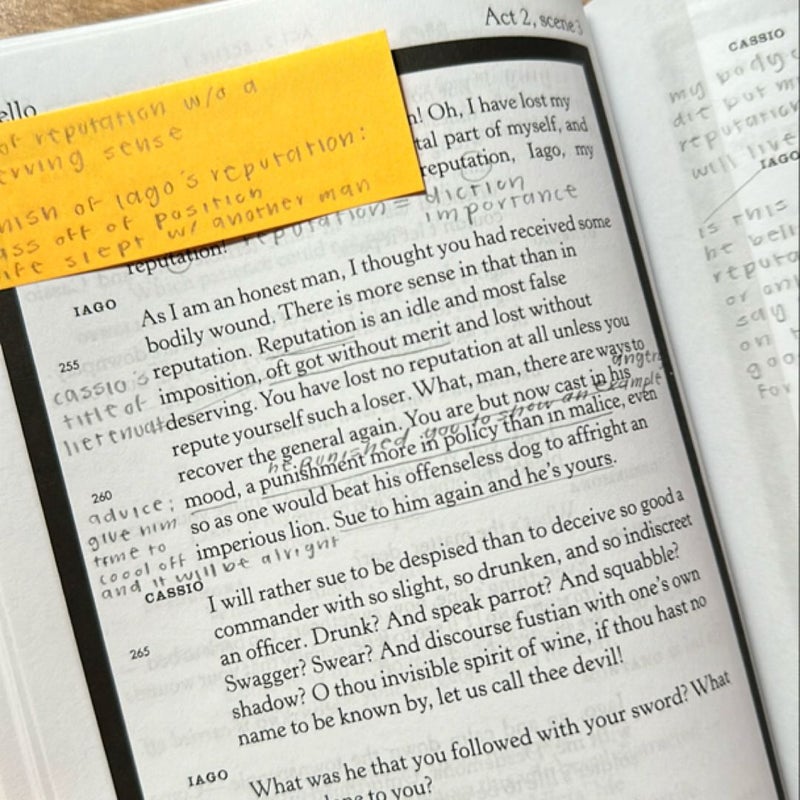 Act 2, scene 3
ello
of reputation w/o a
erving sense
nish of Iago's reputation:
ass off of position
ife slept w/ another man
n! Oh, I have lost my
tal part of myself, and
reputation, Iago, my
reputation!
reputation = diction
importance
IAGO
As I am an honest man, I thought you had received some
bodily wound. There is more sense in that than in
255
reputation. Reputation is an idle and most false
imposition, oft got without merit and lost without
deserving. You have lost no reputation at all unless you
repute yourself such a loser. What, man, there are ways to
recover the general again. You are but now cast in his
cassio's
title of
lietenuat
angry
he punished you to show an example
260
mood, a punishment more in policy than in malice, even
so as one would beat his offenseless dog to affright an
imperious lion. Sue to him again and he's yours.
advice:
give him
time to
coool off
and it will be alright
CASSIO
I will rather sue to be despised than to deceive so good a
commander with so slight, so drunken, and so indiscreet
265
an officer. Drunk? And speak parrot? And squabble?
Swagger? Swear? And discourse fustian with one's own
shadow? O thou invisible spirit of wine, if thou hast no
name to be known by, let us call thee devil!
IAGO
What was he that you followed with your sword? What
to you?
CASSIO
my body
put m
reputation
will live
IAGO
is this
he beli
reputa
or an
say
on
goo
for